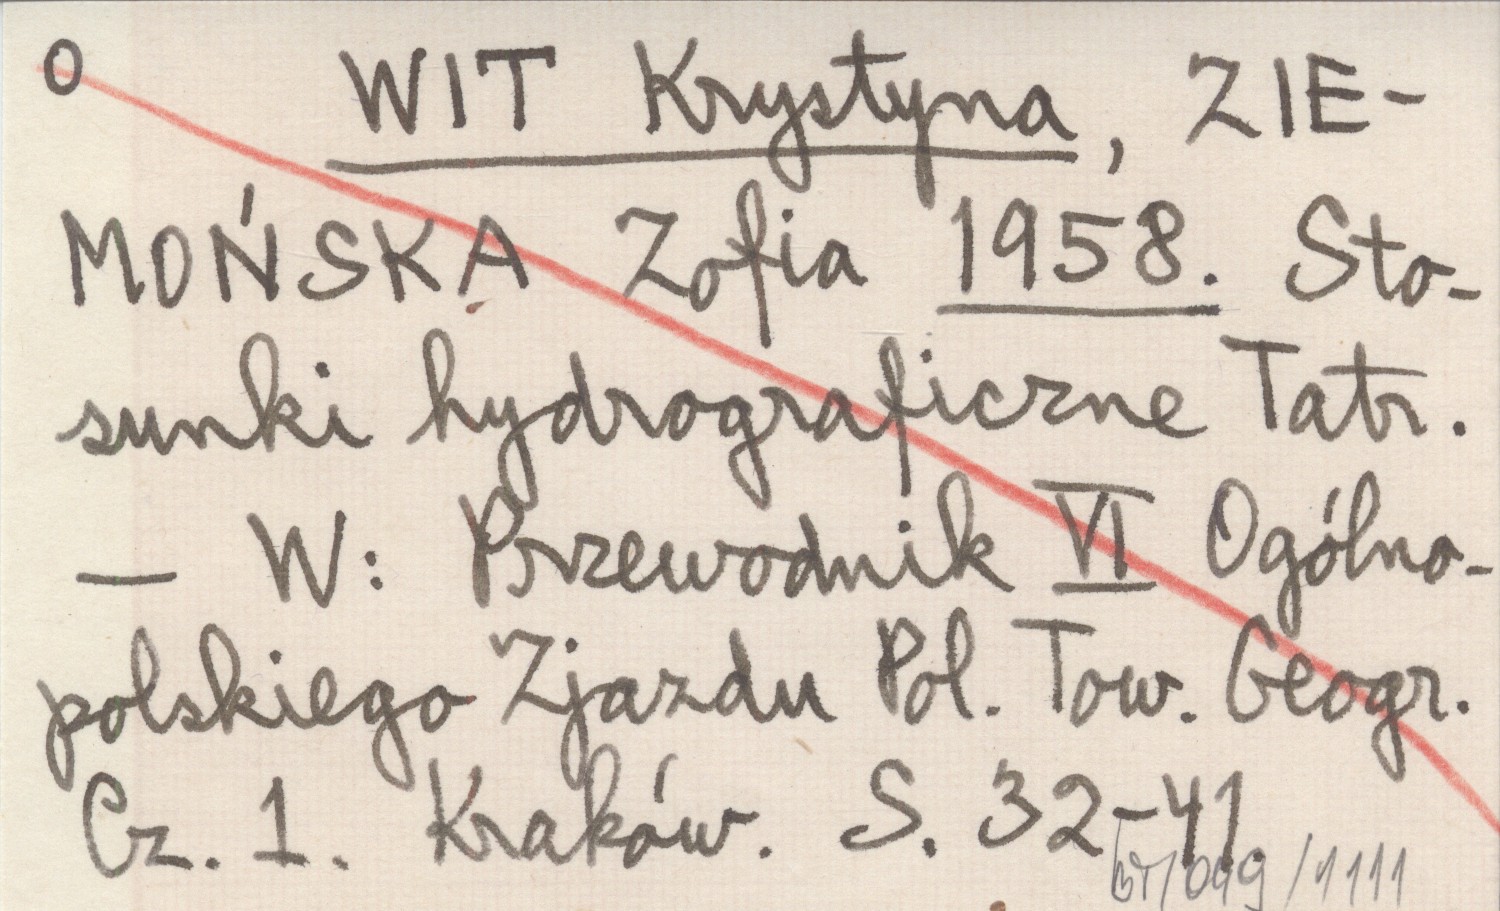 O WIT Krystyna, ZIE-
MOŃSKA Zofia 1958. Sto-
sunki hydrograficzne Tatr.
— W: Przewodnik VI Ogólno-
polskiego Zjazdu Pol. Tow. Geogr.
Cz. 1. Kraków. S. 32-41.
/1111